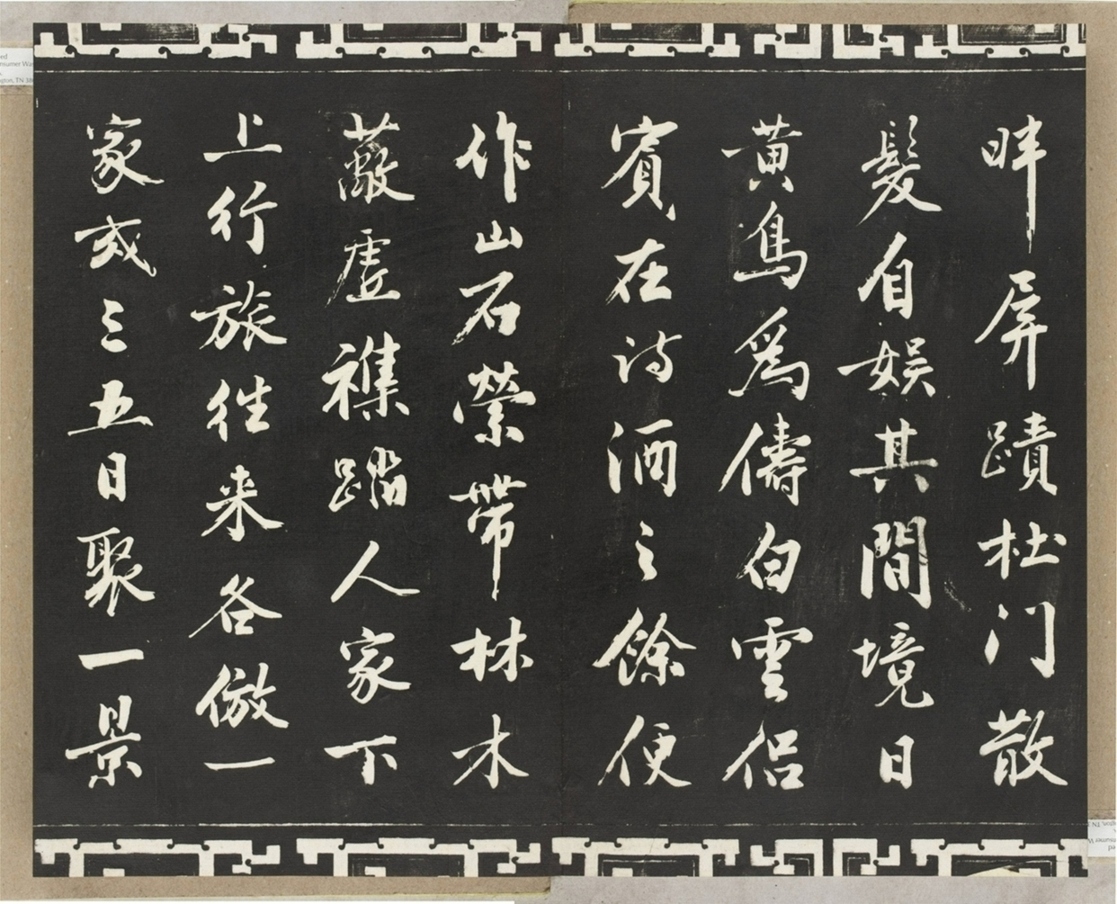 畔屏蹟杜门散
髮自娱其間境日
黄鳥爲儔白雲侣
賓在诗酒之餘便
作山石縈帶林木
蔽虚襍踏人家下
上行旅徃来各倣一
家或三五日聚一景